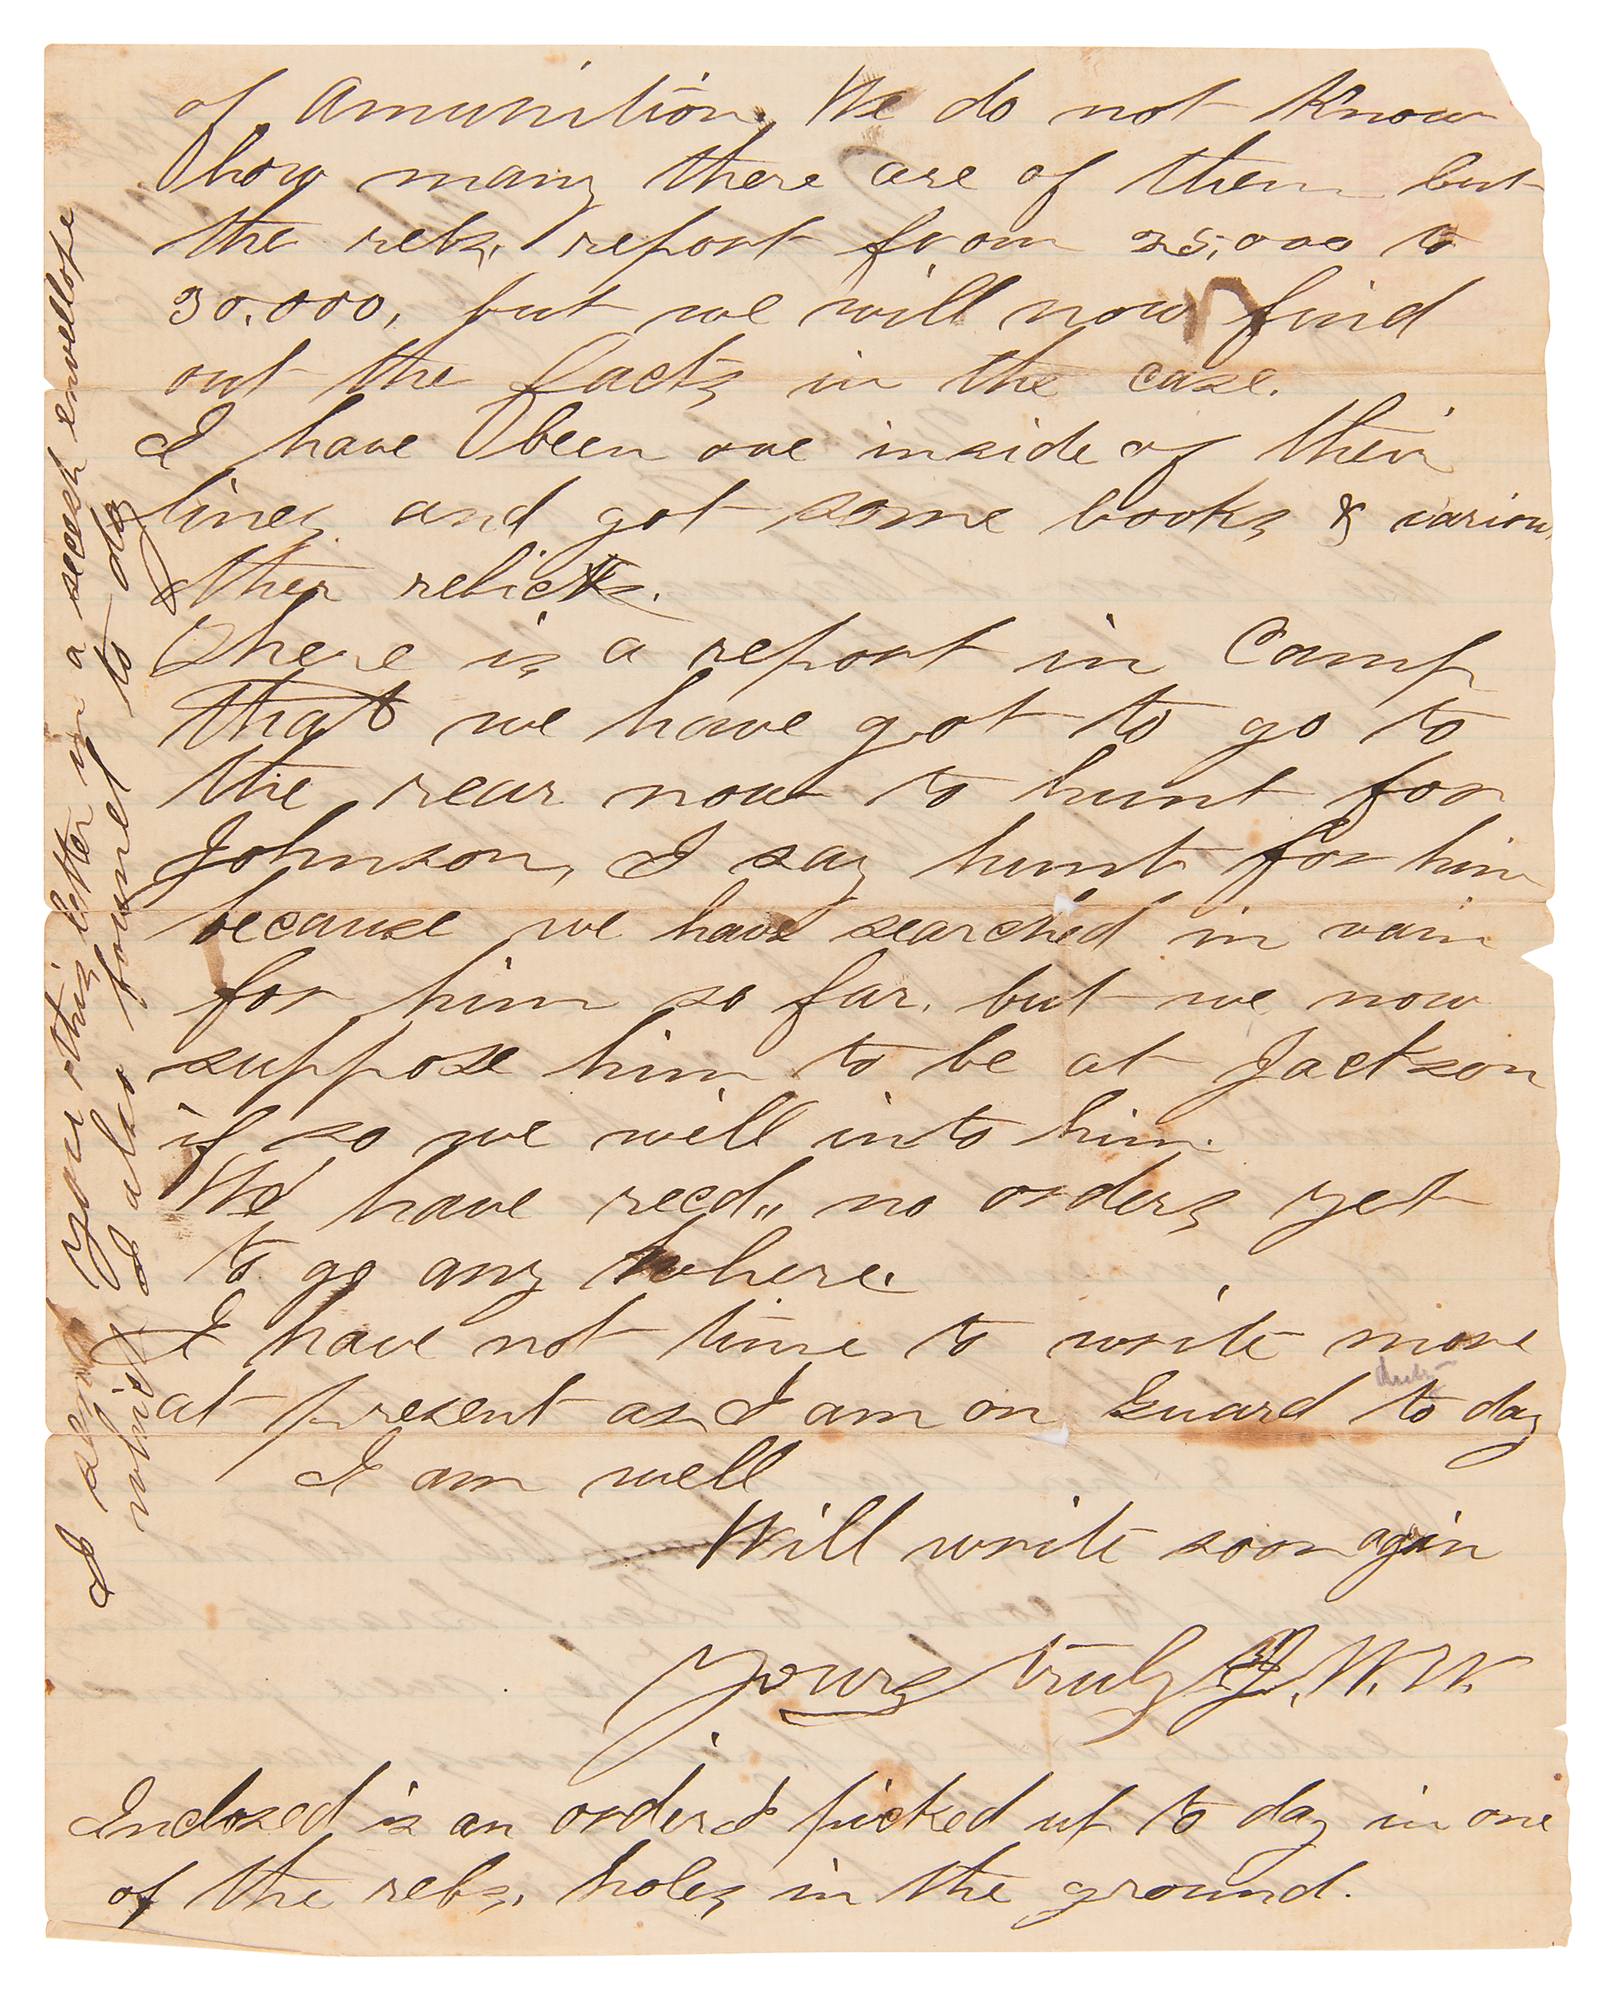 of Amunition. We do not Know
how many there are of them but
the rebs, report from 25,000 to
30.000, but we will now find
out the facts in the case.
I have been ove inside of their
lines and got some books & various
other relicts.
There is a report in Camp
that we have got to go to
the rear now to hunt for
Johnson, I say hunt for him
because we have searched in vain
for him so far, but we now
suppose him to be at Jackson
if so we will into him.
We have recd,, no orders yet
to go any where.
I have not time to write more
duty
at present as I am on Guard to day
I am well
Will write soon agin
Yours truly J. W. W.
Inclosed is an order I picked up to day in one
of the rebs, holes in the ground.
I send you this letter in a secesh envellope
which I also found to day